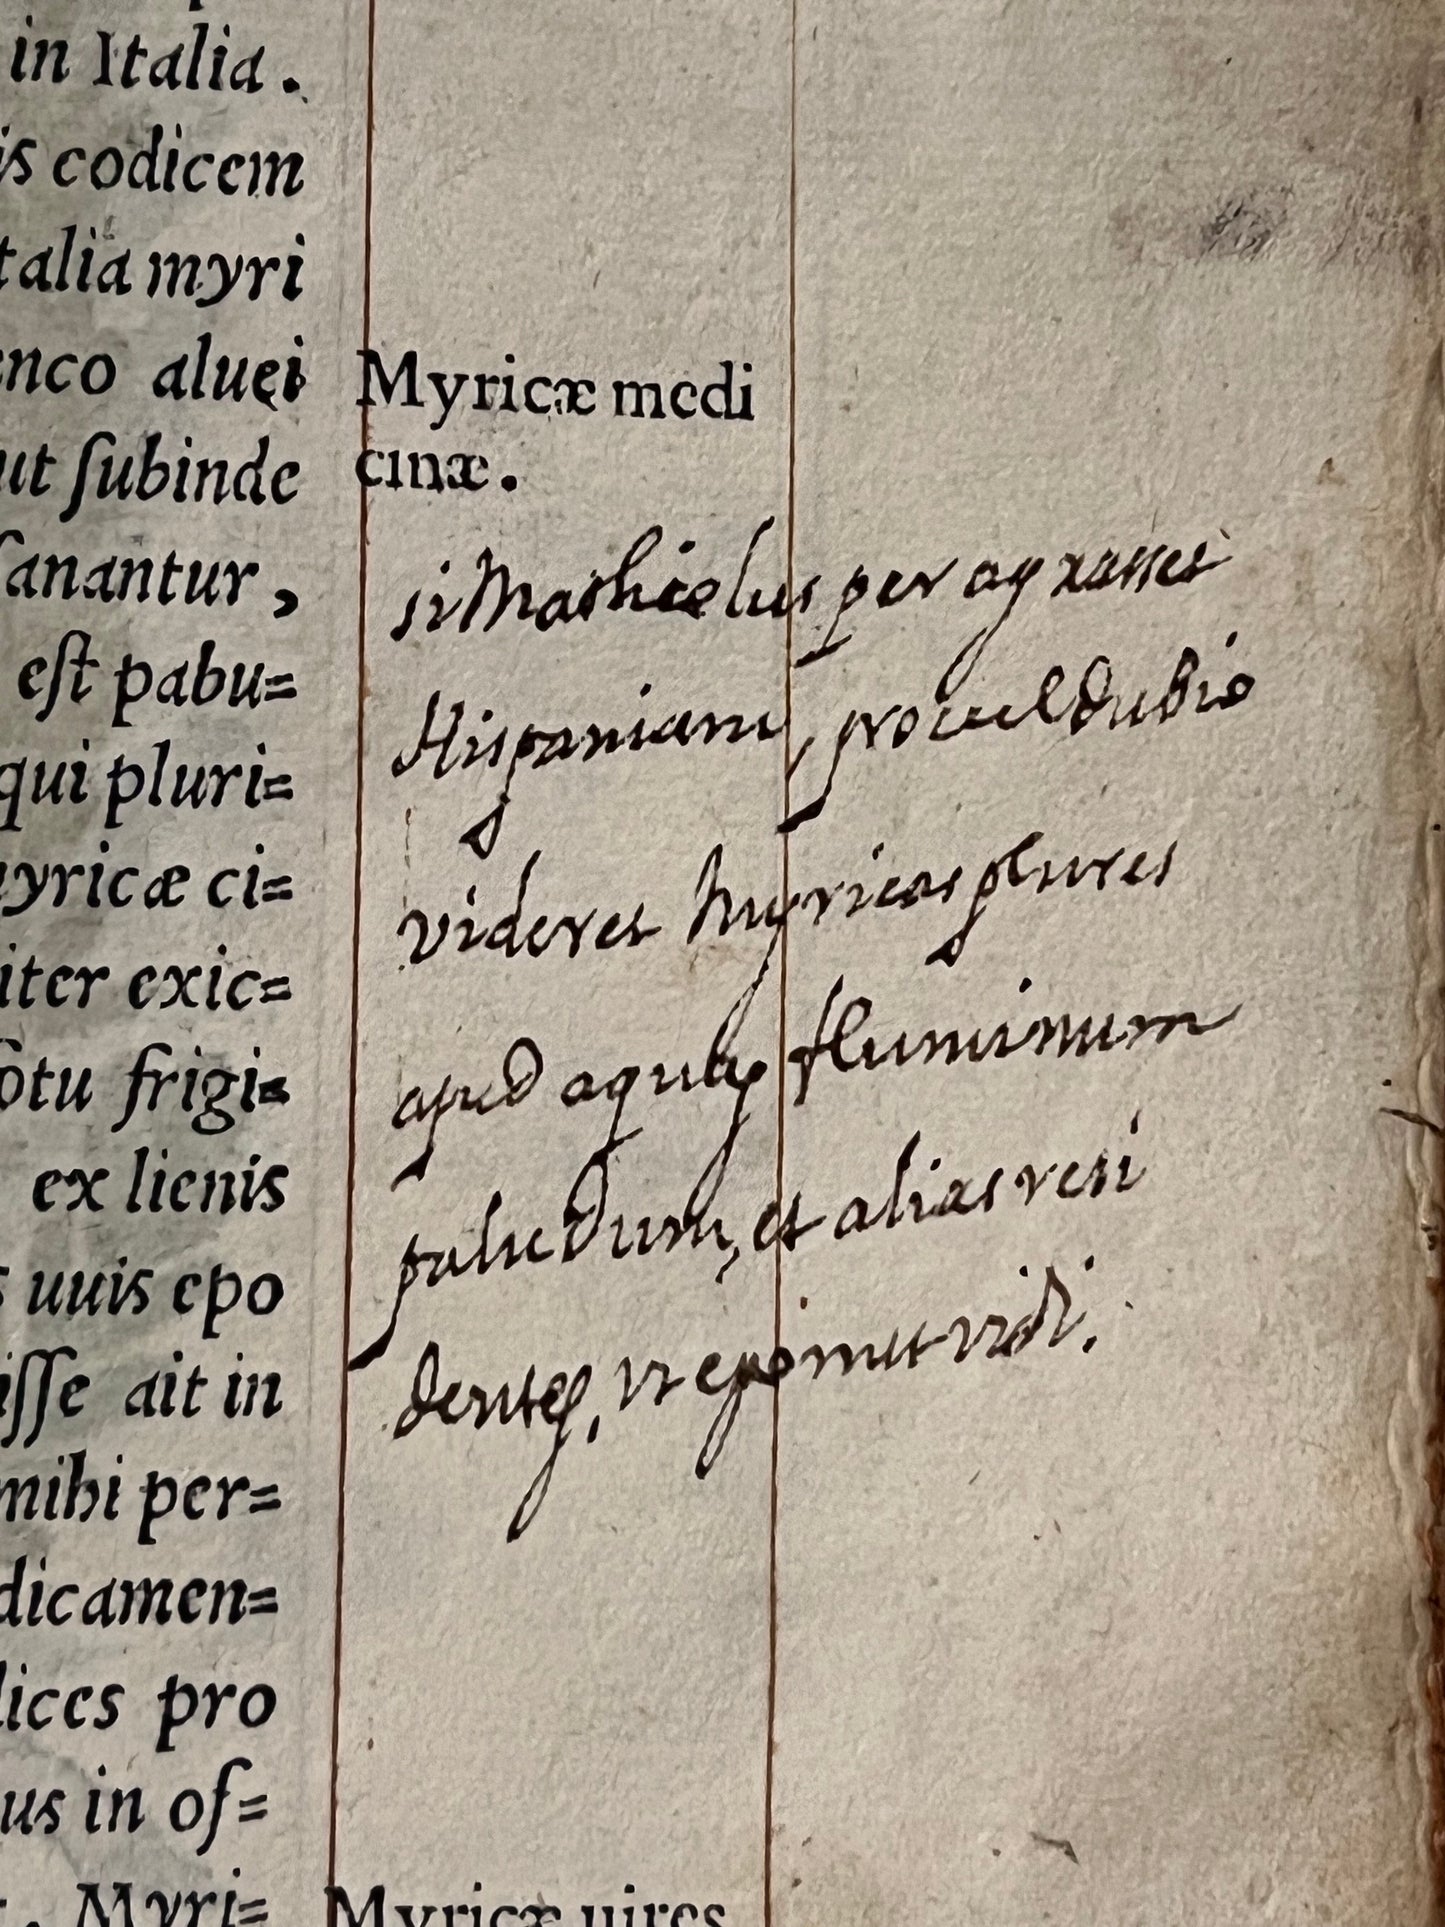 in Italia.
is codicem
talia myri
enco aluei
ut ſubinde
ſanantur,
est pabu=
qui pluri=
yricæ ci=
iter exic=
otu frigi=
ex lienis
s uuis epo
iſſe ait in
mihi per=
dicamen=
lices pro
us in of=
. Myri=
Myricæ medi
cinæ.
si Mathiolus peragrasset
Hispaniam, procul dubio
videret Myricas plures
apud aquas fluminum
paludum, et alias resi
dentes, vt egomet vidi.
Myricæ uires